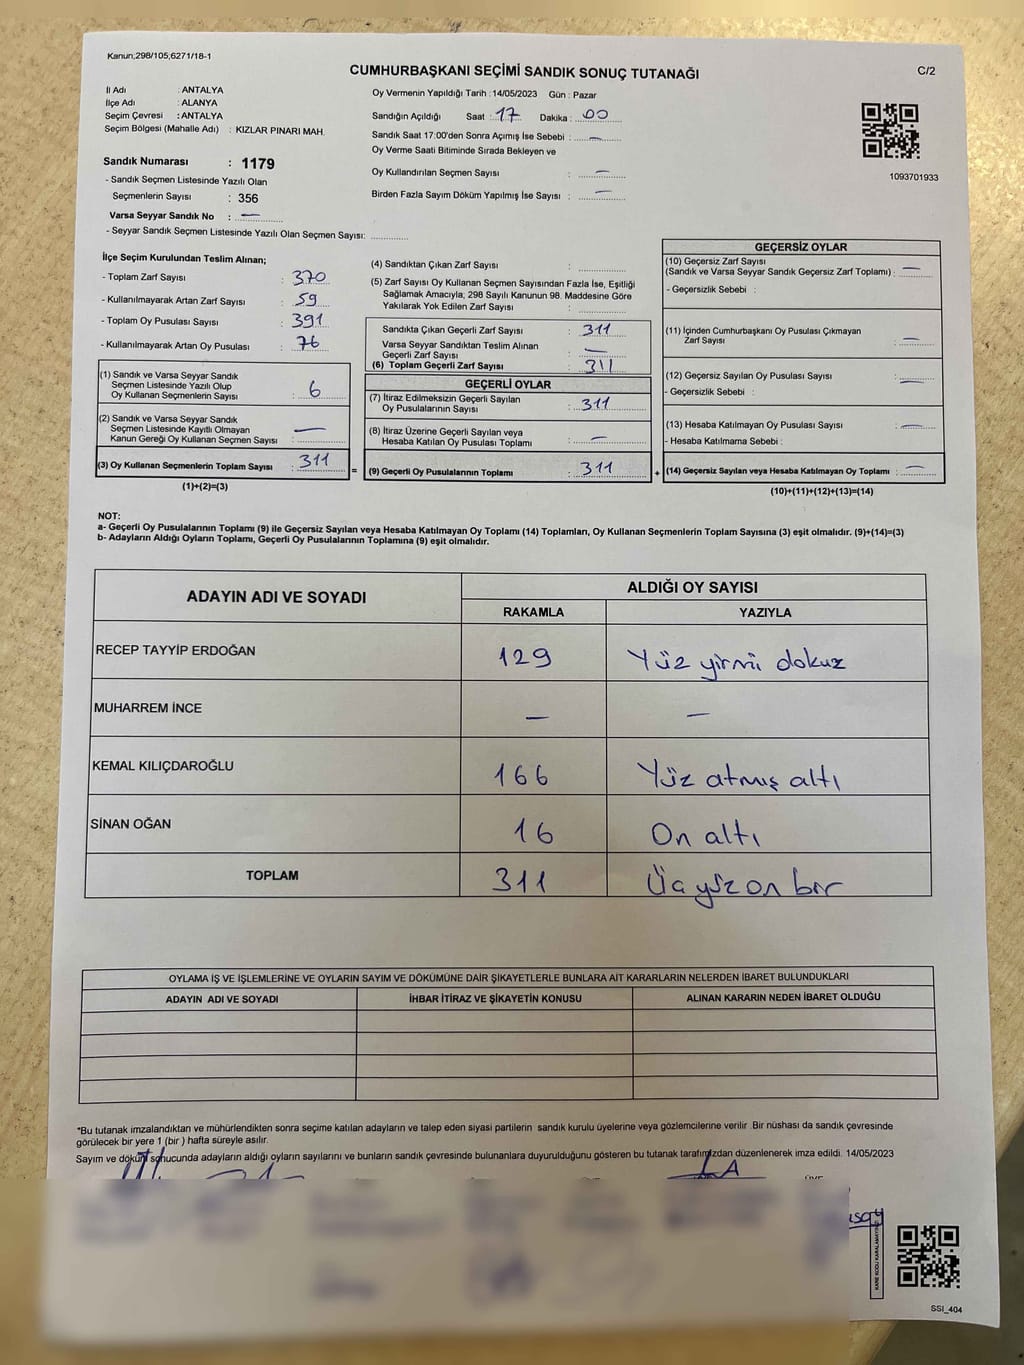 Kanun,298/105,6271/18-1
CUMHURBAŞKANI SEÇİMİ SANDIK SONUÇ TUTANAĞI
C/2
İl Adı : ANTALYA
İlçe Adı : ALANYA
Seçim Çevresi : ANTALYA
Seçim Bölgesi (Mahalle Adı) : KIZLAR PINARI MAH.
Sandık Numarası : 1179
- Sandık Seçmen Listesinde Yazılı Olan
Seçmenlerin Sayısı : 356
Varsa Seyyar Sandık No : —
- Seyyar Sandık Seçmen Listesinde Yazılı Olan Seçmen Sayısı:
Oy Vermenin Yapıldığı Tarih :14/05/2023 Gün : Pazar
Sandığın Açıldığı Saat : 17 Dakika : 00
Sandık Saat 17:00'den Sonra Açımış İse Sebebi : —
Oy Verme Saati Bitiminde Sırada Bekleyen ve
Oy Kullandırılan Seçmen Sayısı : —
Birden Fazla Sayım Döküm Yapılmış İse Sayısı : —
1093701933
İlçe Seçim Kurulundan Teslim Alınan;
- Toplam Zarf Sayısı : 370
- Kullanılmayarak Artan Zarf Sayısı : 59
- Toplam Oy Pusulası Sayısı : 391
- Kullanılmayarak Artan Oy Pusulası : 76
(1) Sandık ve Varsa Seyyar Sandık
Seçmen Listesinde Yazılı Olup
Oy Kullanan Seçmenlerin Sayısı : 6
(2) Sandık ve Varsa Seyyar Sandık
Seçmen Listesinde Kayıtlı Olmayan
Kanun Gereği Oy Kullanan Seçmen Sayısı : —
(3) Oy Kullanan Seçmenlerin Toplam Sayısı : 311
(1)+(2)=(3)
(4) Sandıktan Çıkan Zarf Sayısı :
(5) Zarf Sayısı Oy Kullanan Seçmen Sayısından Fazla İse, Eşitliği
Sağlamak Amacıyla, 298 Sayılı Kanunun 98. Maddesine Göre
Yakılarak Yok Edilen Zarf Sayısı :
Sandıkta Çıkan Geçerli Zarf Sayısı : 311
Varsa Seyyar Sandıktan Teslim Alınan
Geçerli Zarf Sayısı : —
(6) Toplam Geçerli Zarf Sayısı : 311
GEÇERLİ OYLAR
(7) İtiraz Edilmeksizin Geçerli Sayılan
Oy Pusulalarının Sayısı : 311
(8) İtiraz Üzerine Geçerli Sayılan veya
Hesaba Katılan Oy Pusulası Toplamı : —
= (9) Geçerli Oy Pusulalarının Toplamı : 311
GEÇERSİZ OYLAR
(10) Geçersiz Zarf Sayısı
(Sandık ve Varsa Seyyar Sandık Geçersiz Zarf Toplamı) : —
- Geçersizlik Sebebi :
(11) İçinden Cumhurbaşkanı Oy Pusulası Çıkmayan
Zarf Sayısı : —
(12) Geçersiz Sayılan Oy Pusulası Sayısı : —
- Geçersizlik Sebebi :
(13) Hesaba Katılmayan Oy Pusulası Sayısı : —
- Hesaba Katılmama Sebebi :
+ (14) Geçersiz Sayılan veya Hesaba Katılmayan Oy Toplamı : —
(10)+(11)+(12)+(13)=(14)
NOT:
a- Geçerli Oy Pusulalarının Toplamı (9) ile Geçersiz Sayılan veya Hesaba Katılmayan Oy Toplamı (14) Toplamları, Oy Kullanan Seçmenlerin Toplam Sayısına (3) eşit olmalıdır. (9)+(14)=(3)
b- Adayların Aldığı Oyların Toplamı, Geçerli Oy Pusulalarının Toplamına (9) eşit olmalıdır.
ADAYIN ADI VE SOYADI ALDIĞI OY SAYISI
RAKAMLA YAZIYLA
RECEP TAYYİP ERDOĞAN 129 Yüz yirmi dokuz
MUHARREM İNCE — —
KEMAL KILIÇDAROĞLU 166 Yüz atmış altı
SİNAN OĞAN 16 On altı
TOPLAM 311 Üç yüz on bir
OYLAMA İŞ VE İŞLEMLERİNE VE OYLARIN SAYIM VE DÖKÜMÜNE DAİR ŞİKAYETLERLE BUNLARA AİT KARARLARIN NELERDEN İBARET BULUNDUKLARI
ADAYIN ADI VE SOYADI İHBAR İTİRAZ VE ŞİKAYETİN KONUSU ALINAN KARARIN NEDEN İBARET OLDUĞU
*Bu tutanak imzalandıktan ve mühürlendikten sonra seçime katılan adayların ve talep eden siyasi partilerin sandık kurulu üyelerine veya gözlemcilerine verilir .Bir nüshası da sandık çevresinde
görülecek bir yere 1 (bir ) hafta süreyle asılır.
Sayım ve döküm sonucunda adayların aldığı oyların sayılarını ve bunların sandık çevresinde bulunanlara duyurulduğunu gösteren bu tutanak tarafımızdan düzenlenerek imza edildi. 14/05/2023
SSI_404